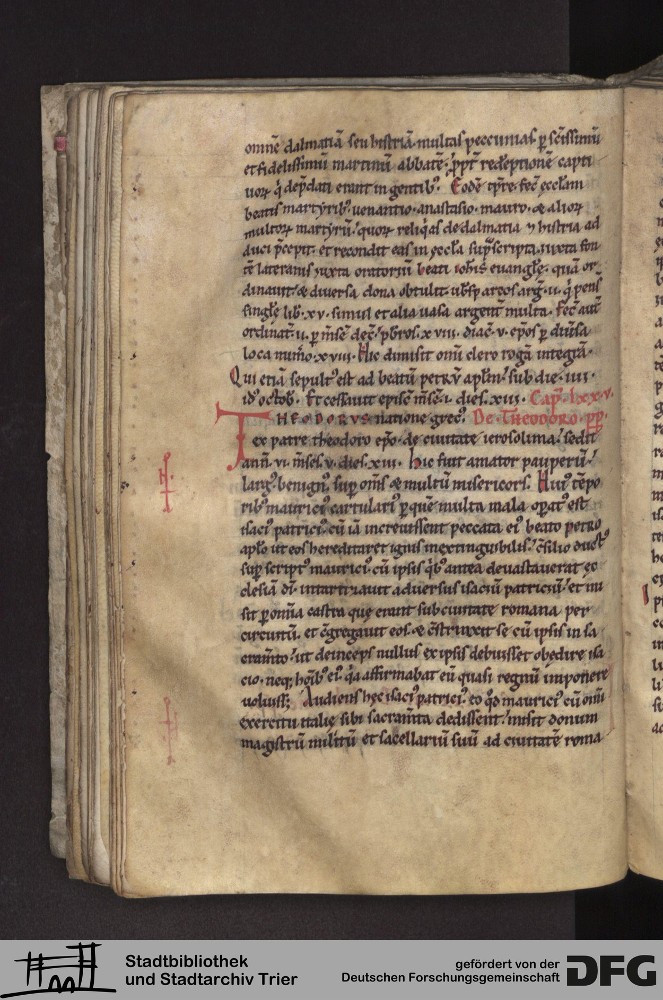 omnē dalmatiā seu histriā. multas peccunias. ꝑ scīssimū
et fidelissimū martinū abbatē. ꝓpt̄ redēptionē capti
uoꝝ q̄ dep̄dati erant in gentibꝰ. Eodē tp̄re. fec̄ eccl̄am
beatis martyribꝰ. uenantio. anastasio. mauro. & alioꝝ
multoꝝ martyrū. quoꝝ reliq̄as de dalmatia ⁊ histria ad
duci p̄cepit. et recondit eas in ęccl̄a sup̄scripta. iuxta fon
tē lateranis iuxta oratoriū beati ioh̄is euangl̄ę. quā or
dinauit. & diuersa dona obtulit.
singl̄ę lib̄. xv. simul et alia uasa argent̄ multa. Fec̄ aut̄
ordinat̄. ii. ꝑ m̄se dec̄. p̄bros. xviii. diac̄. v. ep̄os ꝑ diūsa
loca num̄o. xviii. Hic dimisit omī clero rogā integrā.
Qui etiā sepultꝰ est ad beatū petrū apl̄m. sub die. iiii.
id' octob̄. Et cessauit episc̄ m̄sē. i. dies. xiii. Cap̄. lxxv.
THEODORVS natione grec̄. De Theodoro. pp̄.
ex patre theodoro ep̄o. de ciuitate ierosolima. sedit
ann̄. vi. m̄ses. v. dies. xiii. Hic fuit amator pauperū.
largꝰ. benignꝰ. suꝑ om̄s & multū misericors. Huiꝰ tēpo
ribꝰ mauriciꝰ cartulariꝰ ꝑ quē multa mala oꝑatꝰ est
isaciꝰ patriciꝰ. cū iā increuissent peccata eiꝰ beato petro
apl̄o ut eos hereditaret ignis inextinguibilis. c̄silio ductꝰ
sup̄scriptꝰ mauriciꝰ. cū ipsis q̄bꝰ antea deuastauerat ec
clesiā dī. intartizauit aduersus isaciū patriciū. et mi
sit ꝑ om̄ia castra que erant sub ciuitate romana per
circuitū. et c̄gregauit eos. & c̄strinxit se cū ipsis in sa
cram̄to. ut deinceps nullus ex ipsis debuisset obedire isa
cio. neqꝫ ho̅ībꝰ eiꝰ. q̄a affirmabat eū quasi regnū imponere
uoluissꝫ. Audiens hęc isaciꝰ patriciꝰ. eo q̊d mauriciꝰ cū omī
exercitu italię sibi sacram̄ta dedissent. misit donum
magistrū militū et sacellariū suū ad ciuitatē roma
Stadtbibliothek
und Stadtarchiv Trier
gefördert von der
Deutschen Forschungsgemeinschaft
DFG